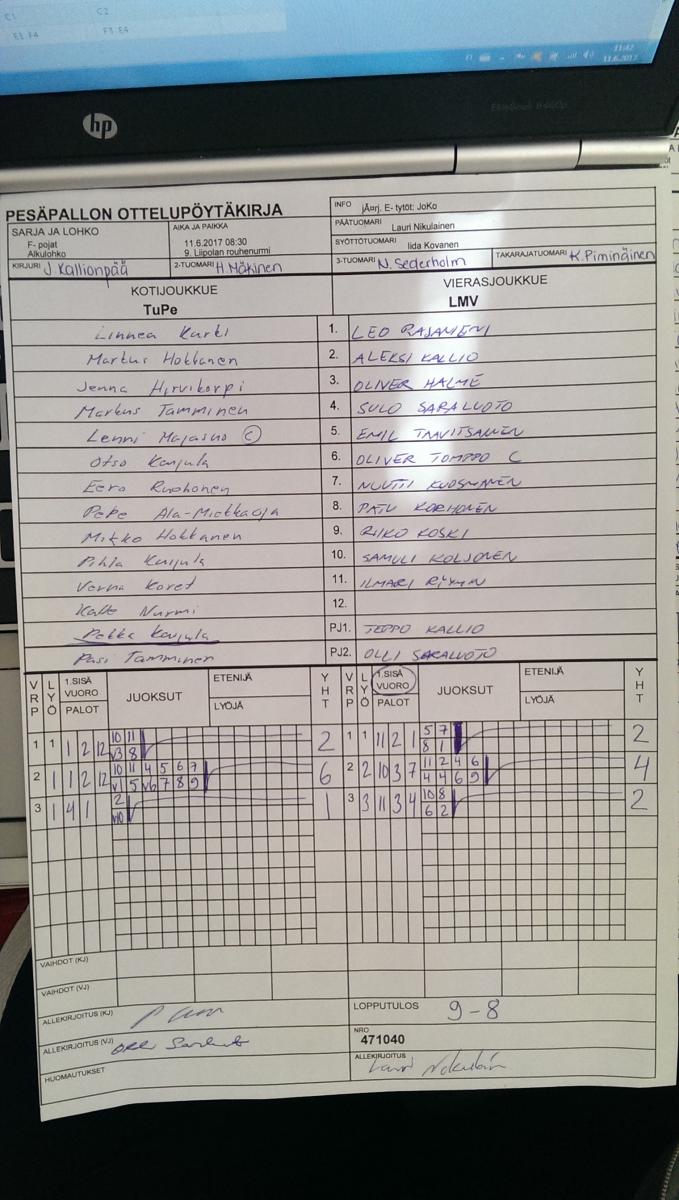 C1 C2
E3 F4 F3 E4
11:42
11.6.2017
hp
PESÄPALLON OTTELUPÖYTÄKIRJA
INFO jÄorj. E- tytöt: JoKo
SARJA JA LOHKO
F- pojat
Alkulohko
AIKA JA PAIKKA
11.6.2017 08:30
9. Liipolan rouhenurmi
PÄÄTUOMARI Lauri Nikulainen
SYÖTTÖTUOMARI Iida Kovanen
KIRJURI J Kallionpää
2-TUOMARI H. Mäkinen
3-TUOMARI N. Sederholm
TAKARAJATUOMARI K Piminäinen
KOTIJOUKKUE
TuPe
VIERASJOUKKUE
LMV
Linnea Kurki 1. LEO RAJANIEMI
Markus Hokkanen 2. ALEKSI KALLIO
Jenna Hirvikorpi 3. OLIVER HALME
Markus Tamminen 4. SULO SARALUOTO
Lenni Majasuo C 5. EMIL TAAVITSAINEN
Otso Karjula 6. OLIVER TOMPPO C
Eero Ruohonen 7. NUUTTI KUOSMANEN
Pepe Ala-Miekkaoja 8. PATU KORHONEN
Mikko Hokkanen 9. RIKO KOSKI
Pihla Karjula 10. SAMULI KOLJONEN
Verna Koret 11. ILMARI
Kalle Nurmi 12.
Pekka Karjula PJ1. TEPPO KALLIO
Pasi Tamminen PJ2. OLLI SARALUOTO
VRP LYÖ 1.SISÄ VUORO PALOT JUOKSUT ETENIJÄ LYÖJÄ YHT
VRP LYÖ 1.SISÄ VUORO PALOT JUOKSUT ETENIJÄ LYÖJÄ YHT
1 1 1 2 12 10 11 2
V3 8
1 1 11 2 1 5 7 2
8 1
2 1 1 2 12 10 11 4 5 6 7 6
V1 5 V6 7 8 9
2 2 10 3 7 11 2 4 6 4
4 4 6 9
3 1 4 1 2 1
V10
3 3 11 3 4 10 8 2
6 2
VAIHDOT (KJ)
VAIHDOT (VJ)
ALLEKIRJOITUS (KJ)
LOPPUTULOS 9-8
ALLEKIRJOITUS (VJ) Olli Saraluoto
NRO
471040
HUOMAUTUKSET
ALLEKIRJOITUS
Lauri Nikulainen